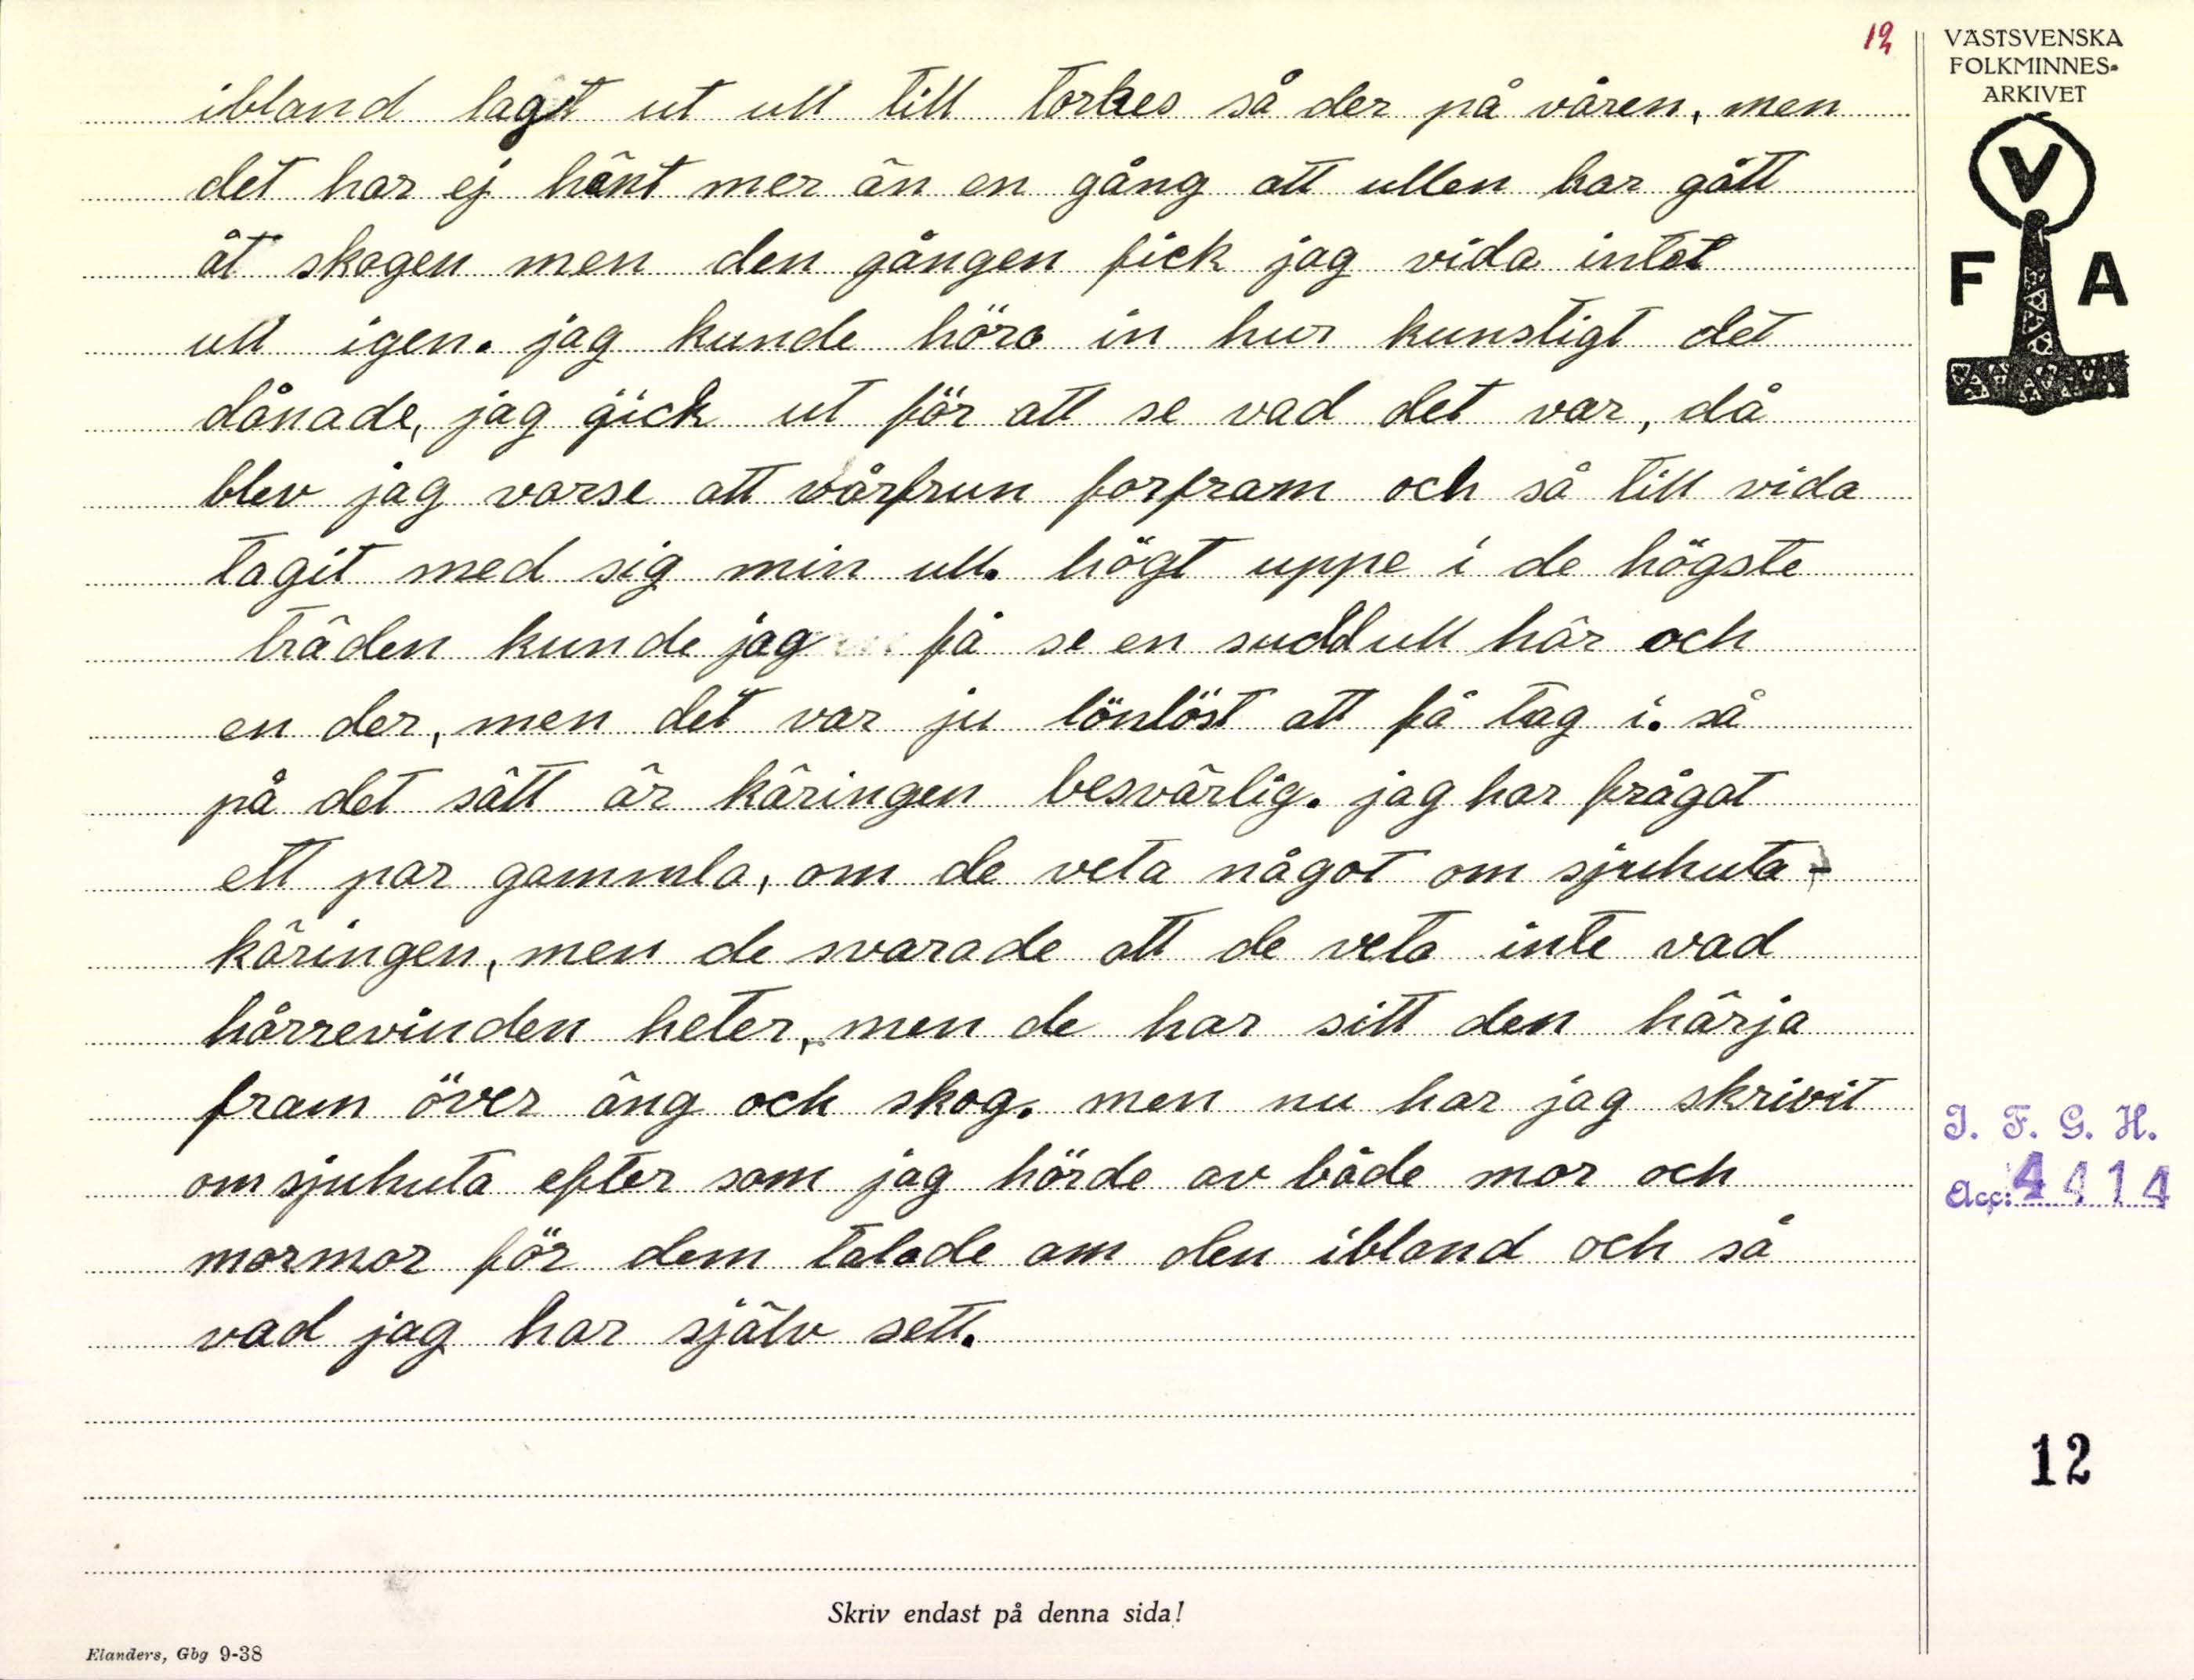 12
VÄSTSVENSKA
FOLKMINNES-
ARKIVET
V
F A
ibland lagit ut ull till torkes så der på våren, men
det har ej hänt mer än en gång att ullen har gått
åt skogen men den gången fick jag vida intet
ull igen. jag kunde höra in hur kunstigt det
dånade, jag gick ut för att se vad det var, då
blev jag varse att vårfrun forfram och så till vida
tagit med sig min ull. högt uppe i de högste
träden kunde jag få se en suddull här och
en der, men det var ju lönlöst att få tag i. så
på det sätt är käringen besvärlig. jag har frågat
ett par gammla, om de veta något om sjuhuta-
käringen, men de svarade att de veta inte vad
hårrevinden heter, men de har sitt den härja
fram över äng och skog. men nu har jag skrivit
om sjuhuta efter som jag hörde av både mor och
mormor för dem talade om den ibland och så
vad jag har själv sett.
I. F. G. H.
Acc: 4414
12
Skriv endast på denna sida!
Elanders, Gbg 9-38